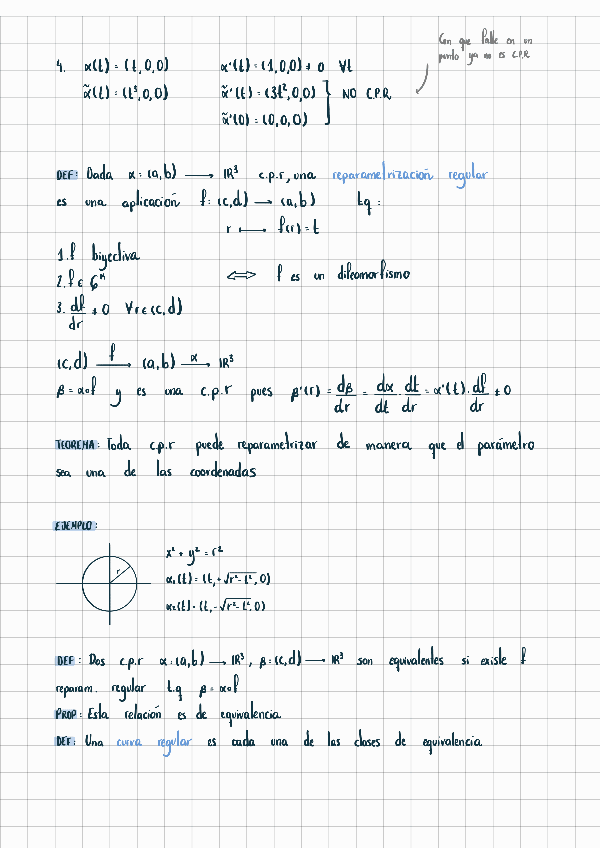 Con que falle en un
punto ya no es C.P.R
4. α(t) = (t,0,0) α'(t) = (1,0,0) ≠ 0 ∀t
α̃(t) = (t³,0,0) α̃'(t) = (3t²,0,0) } NO C.P.R
α̃'(0) = (0,0,0)
DEF: Dada α: (a,b) ⟶ IR³ c.p.r, una reparametrización regular
es una aplicación f: (c,d) ⟶ (a,b) tq:
r ⟼ f(r) = t
1. f biyectiva
2. f ∈ C^∞ ⟺ f es un difeomorfismo
3. df/dr ≠ 0 ∀r ∈ (c,d)
(c,d) —f→ (a,b) —α→ IR³
β = α∘f y es una c.p.r pues β'(r) = dβ/dr = dα/dt · dt/dr = α'(t) · df/dr ≠ 0
TEOREMA: Toda c.p.r puede reparametrizar de manera que el parámetro
sea una de las coordenadas
EJEMPLO:
x² + y² = r²
r
α₁(t) = (t, +√(r²-t²), 0)
α₂(t) = (t, -√(r²-t²), 0)
DEF: Dos c.p.r α: (a,b) ⟶ IR³, β: (c,d) ⟶ IR³ son equivalentes si existe f
reparam. regular t.q β = α∘f
PROP: Esta relación es de equivalencia
DEF: Una curva regular es cada una de las clases de equivalencia